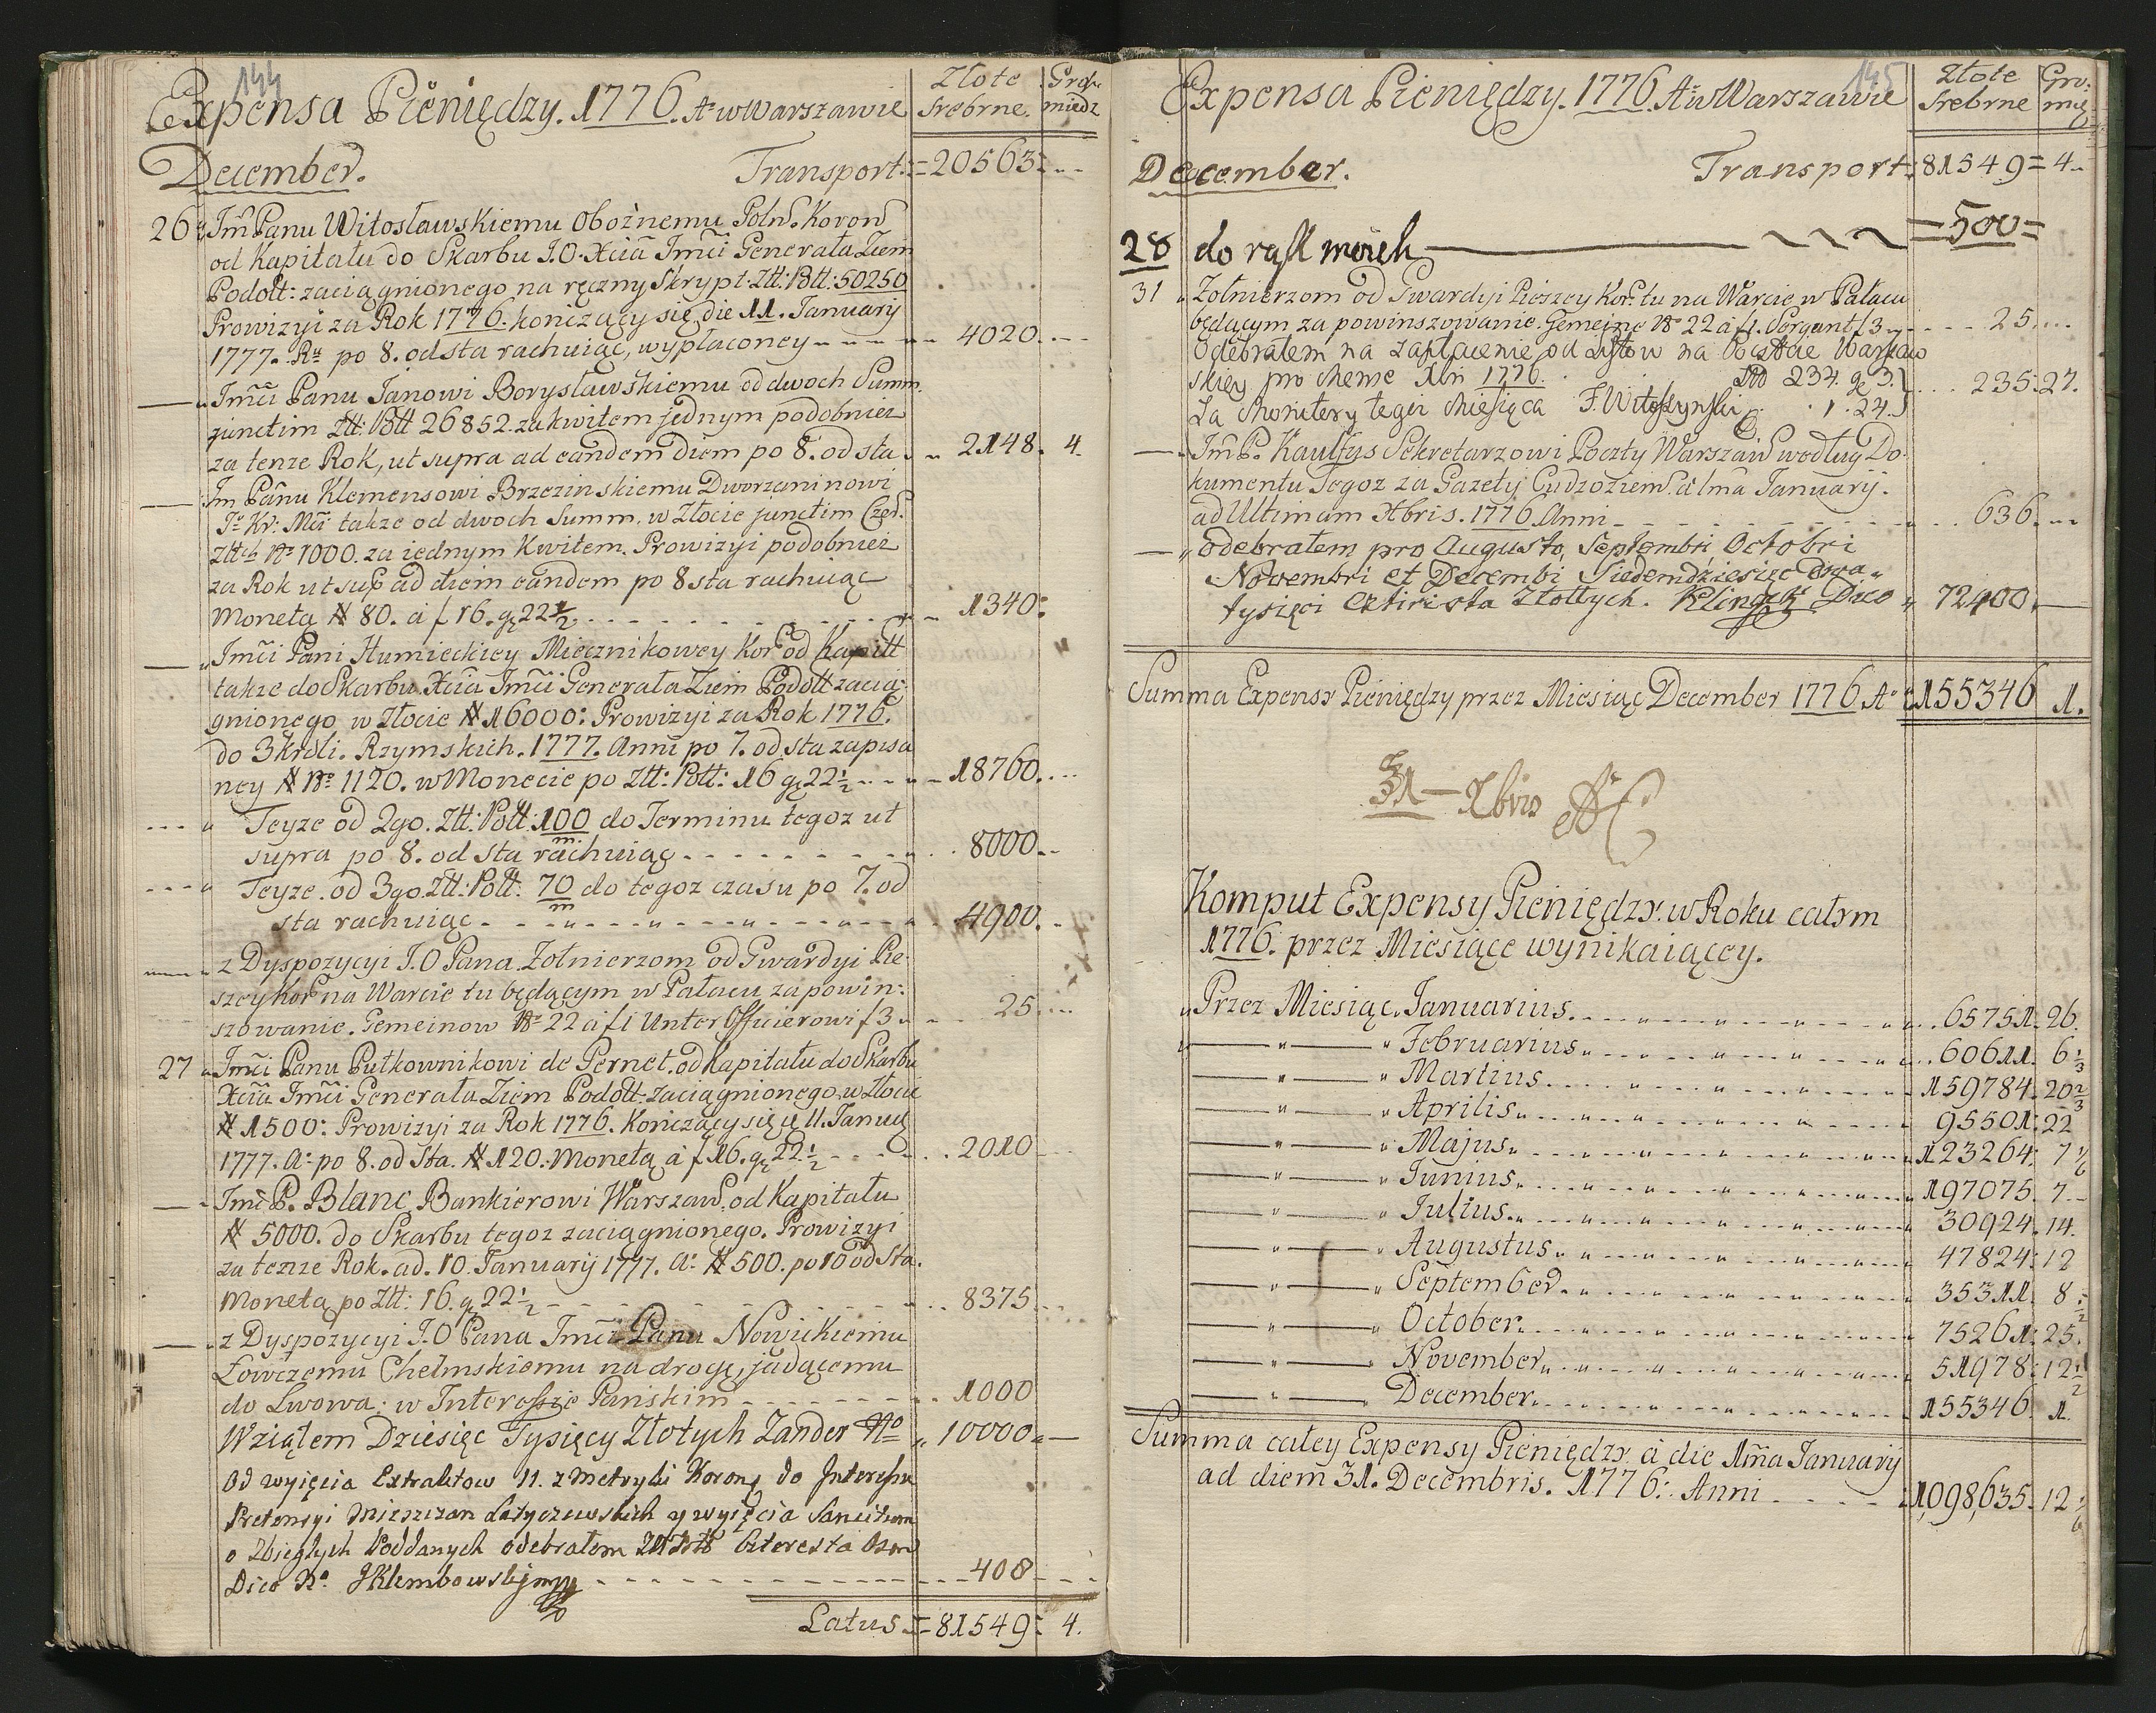 144
Expensa Pieniędzy. 1776. Aº w Warszawie
Złote Srebrne.
Gro: miedz
December. Transport: = 20563:
26 Jm̃ Panu Witosławskiemu Oboźnemu Poln. Koron
od Kapitału do Skarbu J.O. Xcia Jmći Generała Ziem
Podoll: zaciągnionego na ręczny Skrypt. Ztt: Pott: 50250
Prowizyi za Rok 1776. kończący się die 11. January
1777. po 8. od sta rachuiąc, wypłaconey 4020.
Jmći Panu Janowi Borysławskiemu od dwoch Summ.
junctim Ztt: Pott 26852. za kwitem jednym podobnież
za tenze Rok, ut supra ad eandem diem po 8. od sta 2148. 4.
Jm Panu Klemensowi Brzezinskiemu Dworzaninowi
Jº Kr: Mći takze od dwoch Summ, w Złocie junctim Czer.
Zttch Nº 1000. za iednym Kwitem. Prowizyi podobnież
za Rok ut sup ad diem eandem po 8 sta rachuiąc
Monetą # 80. á f 16. gr 22½ 1340:
Jmći Pani Humieckiey Miecznikowey Kor od Kapitt
takze do Skarbu Xcia Jmći Generała Ziem Podoll zacią:
gnionego w Złocie # 16000: Prowizyi za Rok 1776.
do 3 Króli. Rzymskich. 1777. Anni po 7. od sta zapisa
ney # Nº 1120. w Monecie po Ztt: Pott: 16 gr 22½ 18760.
Teyze od 2go. Ztt: Pott: 100/m do Terminu tegoz ut
supra po 8. od sta rachuiąc 8000.
Teyze. od 3go. Ztt: Pott: 70/m do tegoz czasu po 7. od
sta rachuiąc 4900.
z Dyspozycyi J.O Pana Żołnierzom od Gwardyi Pie
szey Kor na Warcie tu będącym w Pałacu za powin:
szowanie. Gemeinow Nº 22 á f 1 Unter Officierowi f 3 25
27 Jmći Panu Pułkownikowi de Pernet. od Kapitału do Skarbu
Xcia Jmći Generała Ziem Podoll. zaciągnionego w Złocie
# 1500: Prowizyi za Rok 1776. Kończący się d 11. Januarij
1777. A: po 8. od sta. # 120. Monetą á f 16. gr 22½ 2010
Jmć P. Blanc Bankierowi Warszaw. od Kapitału
# 5000. do Skarbu tegoz zaciągnionego. Prowizyi
za tenze Rok. ad. 10. January 1777. A: # 500. po 10 od Sta.
Monetą po Ztt: 16. gr 22½ 8375
z Dyspozycyi J.O Pana Jmći Panu Nowickiemu
Łowczemu Chełmskiemu na drogę, jadącemu
do Lwowa: w Interessie Pańskim 1000
Wziąłem Dziesięc Tysięcy Złotych Zander 10000
Od wyięcia Extraktow 11. z Metryki Korony do Interessu
Pretensyi Mieszczan Latyczewskich y wyięcia Sancitum
o Zbiegłych Poddanych odebrałem Czterysta Osm
Dico Nº JKlembowski mp 408
Latus = 81549: 4.
145
Expensa Pieniędzy. 1776. Aº w Warszawie
Złote Srebrne
Gro: mie
December. Transport: 81549 = 4.
28 do rąk moich = 500 =
31 Żołnierzom od Gwardyi Pieszey Kor. tu na Warcie w Pałacu
będącym za powinszowanie. Gemeine Nº 22 á f 1. Sergant f 3 25
Odebrałem na Zapłacenie od Listow na Poczcie Warszaw
skiey pro Mense Xbri 1776. 234. gr 3. 235: 27.
Za Monitery tegoz Miesiąca F. Witoszynski 1. 24.
Jm P. Kaulfus Sekretarzowi Poczty Warszaw według Do
kumentu Tegoz za Gazety Cudzoziem. á 1ma January.
ad Ultimam Xbris. 1776 Anni 636.
odebrałem pro Augusto, Septembri Octobri
Novembri et Decembi Siedemdziesiąt dwa
tysięci Cztirista Złottych. Klingk Dico 72400.
Summa Expensy Pieniędzy przez Miesiąc December 1776 Aº 155346 1.
31 — Xbris
Komput Expensy Pieniędzy. w Roku całym
1776. przez Miesiące wynikaiącey.
Przez Miesiąc. Januarius 65751. 26.
Februarius 60611. 6⅓
Martius 159784. 20⅔
Aprilis 95501: 22
Majus 123264: 7⅙
Junius 197075. 7
Julius 30924. 14.
Augustus 47824: 12
September 35311. 8½
October 75261: 25.
November 51978: 12½
December 155346. 1.
Summa całey Expensy Pieniędzy. á die 1ma January
ad diem 31. Decembris. 1776: Anni 1,098,635. 12⅙